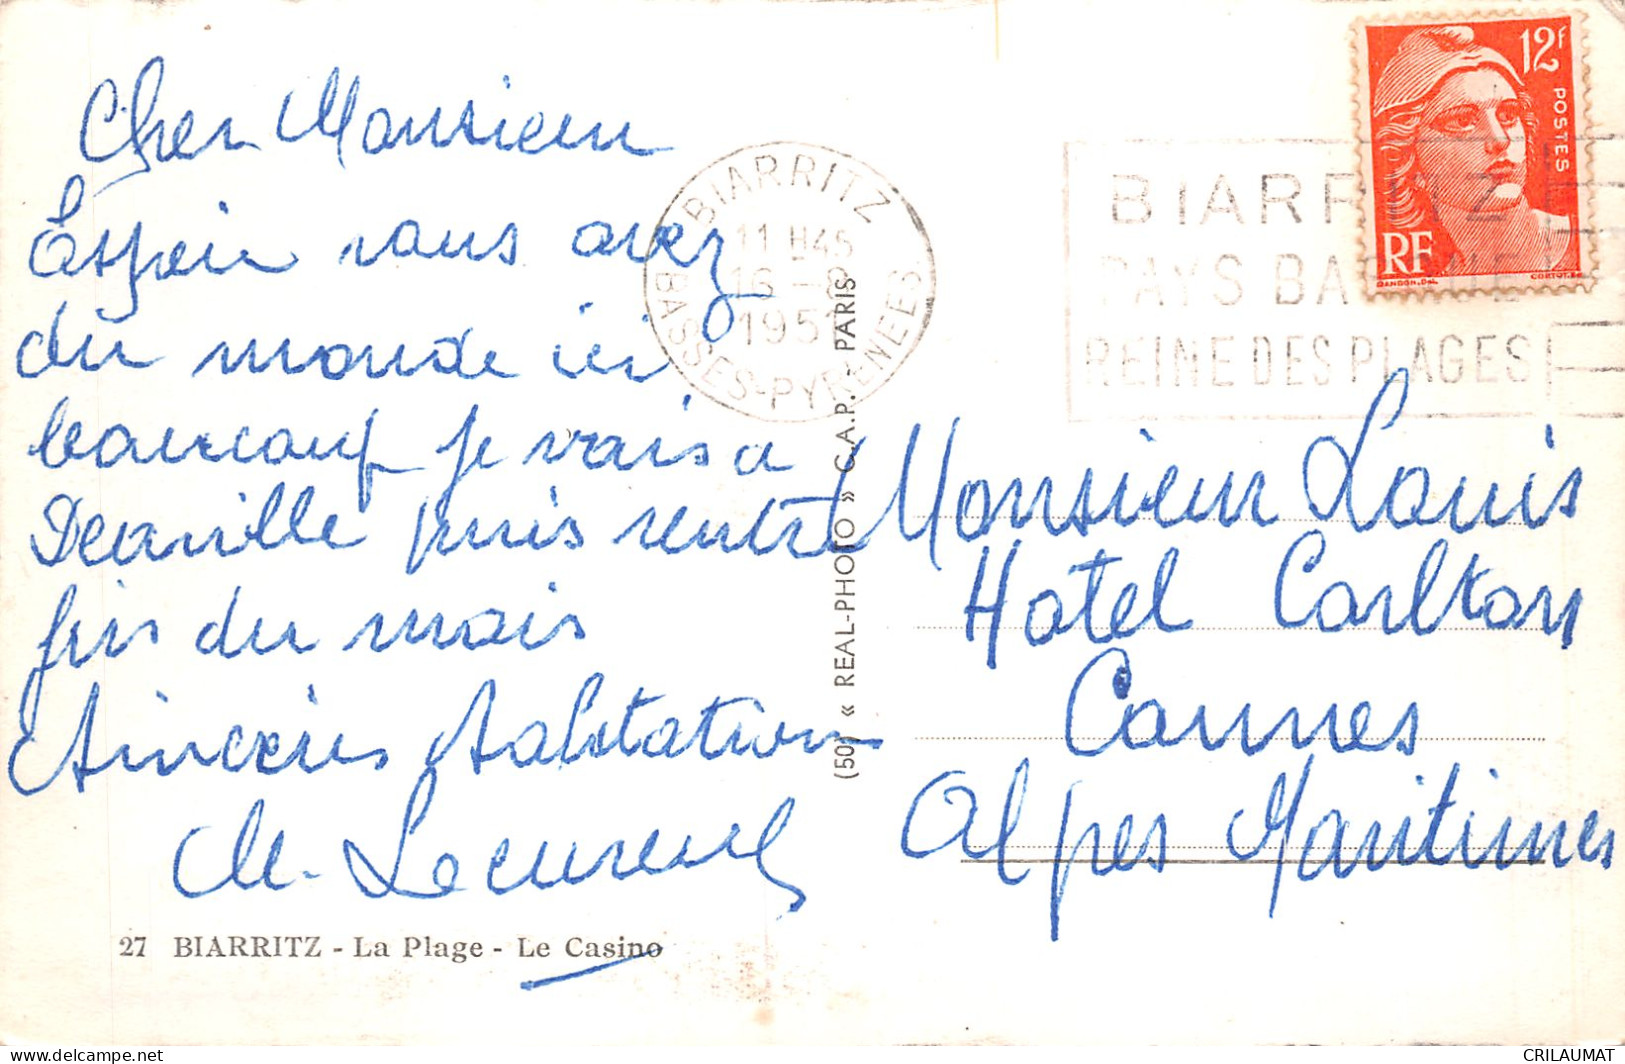 Cher Monsieur
Espoir vous avez
du monde ici
beaucoup je vais a
Deauville puis rentre
fin du mois
Sincères Salutation
M. Lecureul
27 BIARRITZ - La Plage - Le Casino
(50) « REAL-PHOTO » C.A.P. - PARIS
BIARRITZ
11 H45
16 -8
195
BASSES-PYRENEES
BIARRITZ
PAYS BASQUE
REINE DES PLAGES
12F
POSTES
RF
GANDON.Del.
CORTOT.Sc
Monsieur Louis
Hotel Carlton
Cannes
Alpes Maritimes
CRILAUMAT